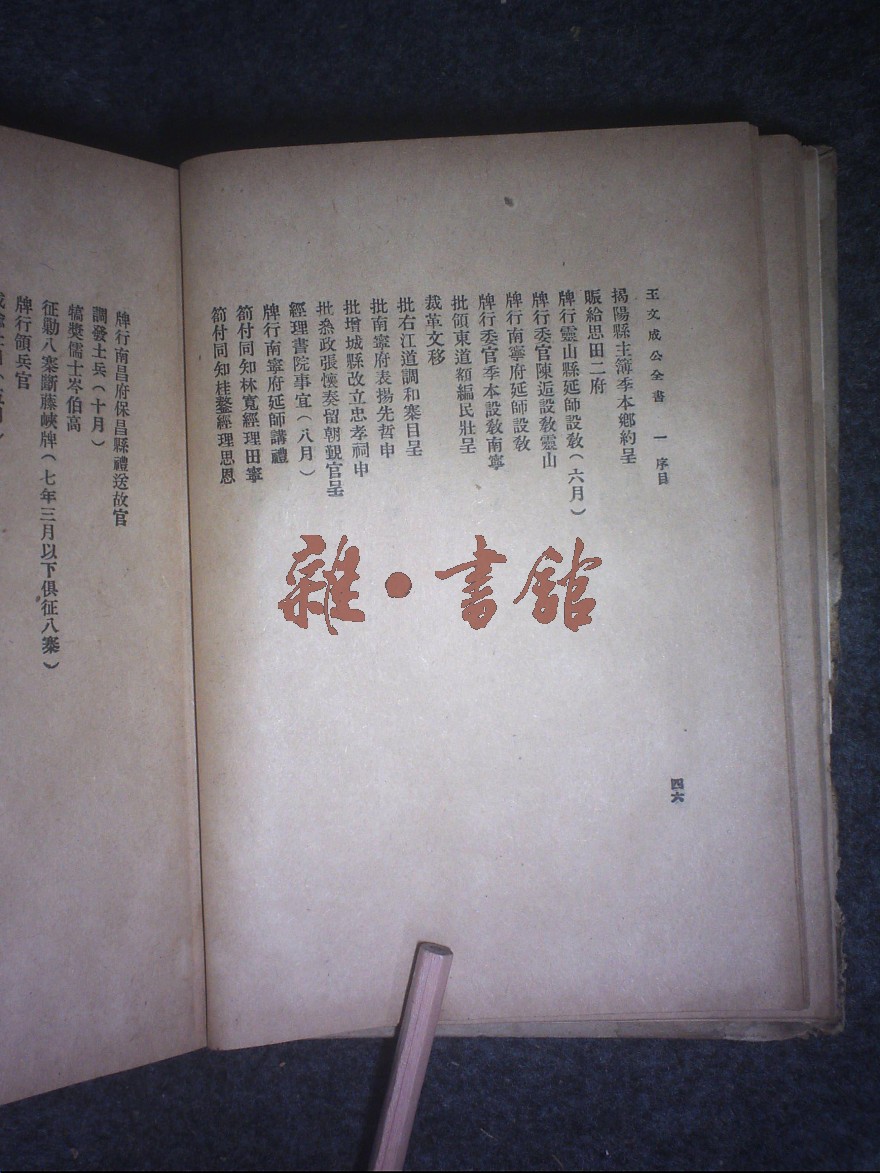 王文成公全書 一 序目
揭陽縣主簿季本鄉約呈
賑給思田二府
牌行靈山縣延師設教(六月)
牌行委官陳逅設教靈山
牌行南寧府延師設教
牌行委官季本設教南寧
批嶺東道額編民壯呈
裁革文移
批右江道調和寨目呈
批南寧府表揚先哲申
批增城縣改立忠孝祠申
批叅政張懷奏留朝覲官呈
經理書院事宜(八月)
牌行南寧府延師講禮
箚付同知林寬經理田寧
箚付同知桂鏊經理思恩
四六
牌行南昌府保昌縣禮送故官
調發土兵(十月)
犒獎儒士岑伯高
征勦八寨斷藤峽牌(七年三月以下俱征八寨)
牌行領兵官
雜·書館